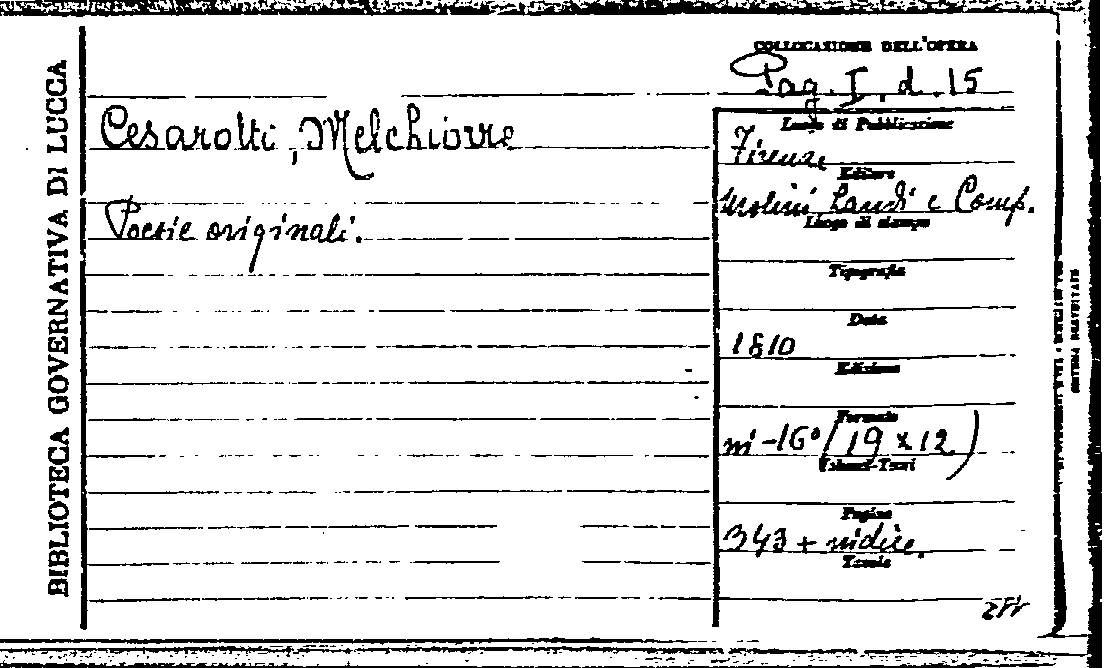 BIBLIOTECA GOVERNATIVA DI LUCCA
COLLOCAZIONE DELL'OPERA
Pag. I. d. 15
Cesarotti, Melchiorre
Poesie originali.
Luogo di Pubblicazione
Firenze
Editore
Molini Landi e Comp.
Luogo di stampa
Tipografia
Data
1810
Edizione
Formato
in-16° (19 x 12)
Volumi-Tomi
Pagine
343 + indice.
Tavole